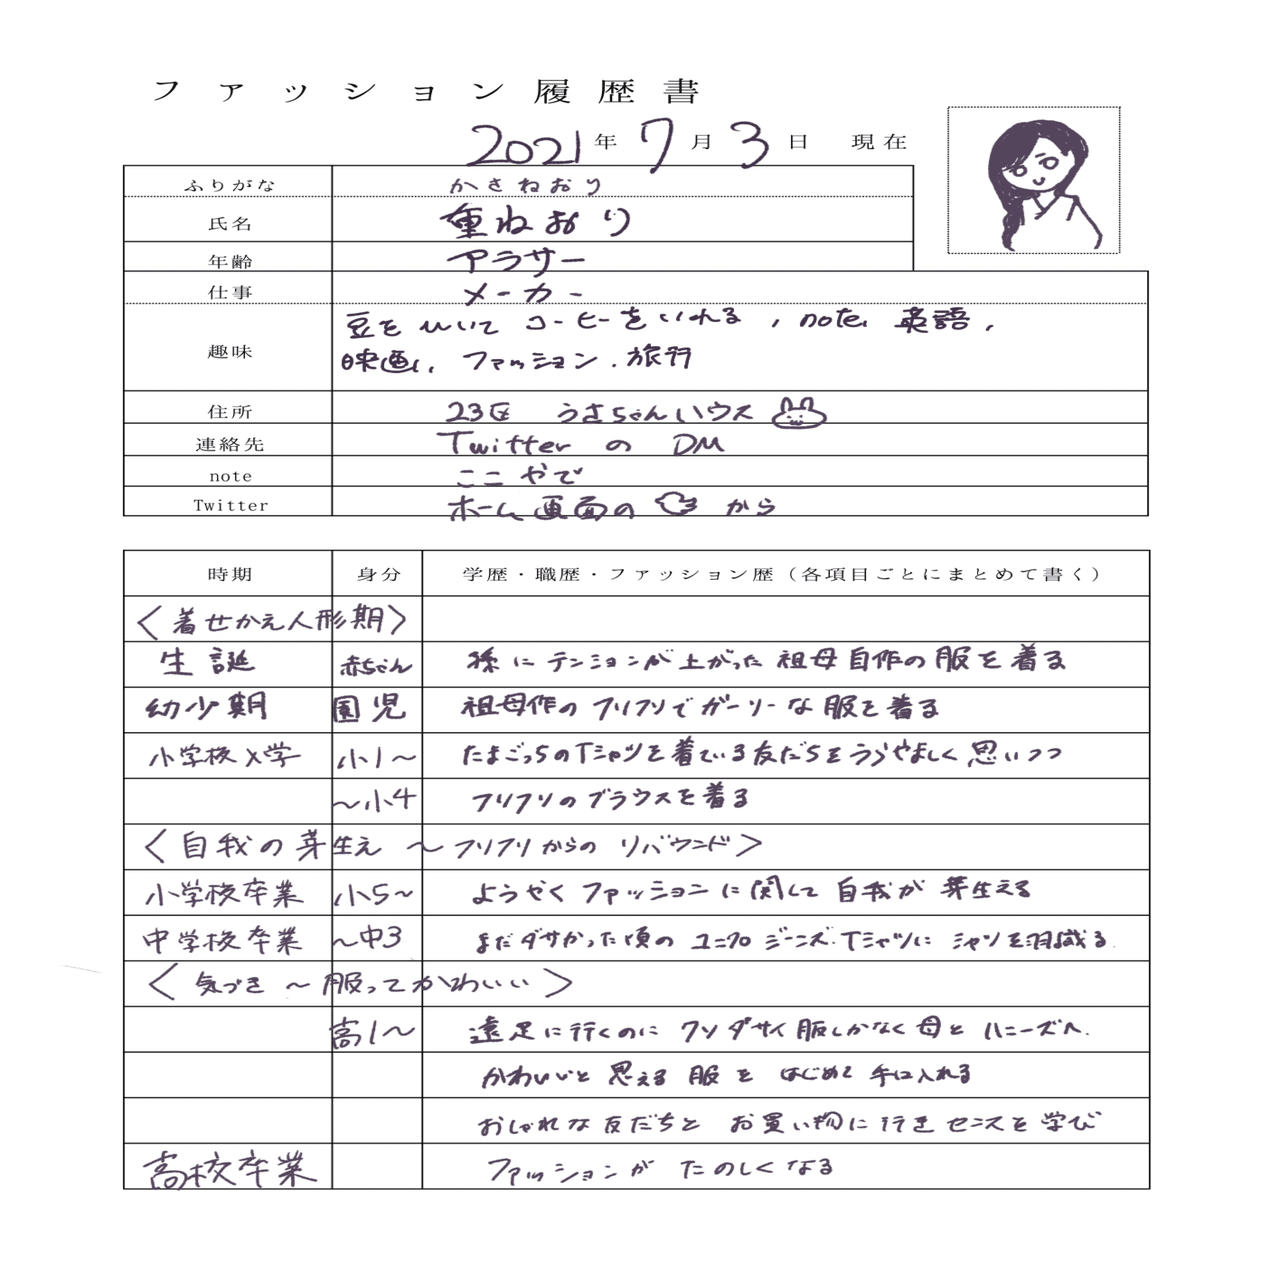 ファッション履歴書
2021年 7月 3日 現在
ふりがな かさねおり
氏名 重ねおり
年齢 アラサー
仕事 メーカー
趣味 豆をひいてコーヒーをいれる, note, 英語,
映画, ファッション, 旅行
住所 23区 うさちゃんハウス
連絡先 TwitterのDM
note ここやで
Twitter ホーム画面の から
時期 身分 学歴・職歴・ファッション歴（各項目ごとにまとめて書く）
〈着せかえ人形期〉
生誕 赤ちゃん 孫にテンションが上がった祖母自作の服を着る
幼少期 園児 祖母作のフリフリでガーリーな服を着る
小学校入学 小1〜 たまごっちのTシャツを着ている友だちをうらやましく思いつつ
〜小4 フリフリのブラウスを着る
〈自我の芽生え 〜フリフリからのリバウンド〉
小学校卒業 小5〜 ようやくファッションに関して自我が芽生える
中学校卒業 〜中3 まだダサかった頃のユニクロジーンズ.Tシャツにシャツを羽織る.
〈気づき 〜服ってかわいい〉
高1〜 遠足に行くのにクソダサイ服しかなく母とハニーズへ.
かわいいと思える服をはじめて手に入れる
おしゃれな友だちとお買い物に行きセンスを学び
高校卒業 ファッションがたのしくなる